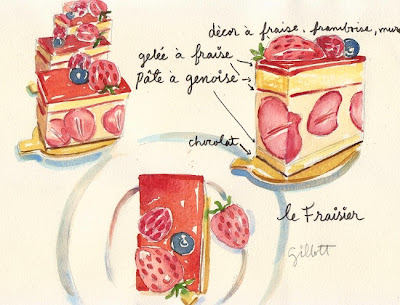 décor à fraise. framboise, mure
gelée à fraise
pâte à genoise
chocolat
le Fraisier
Gillott